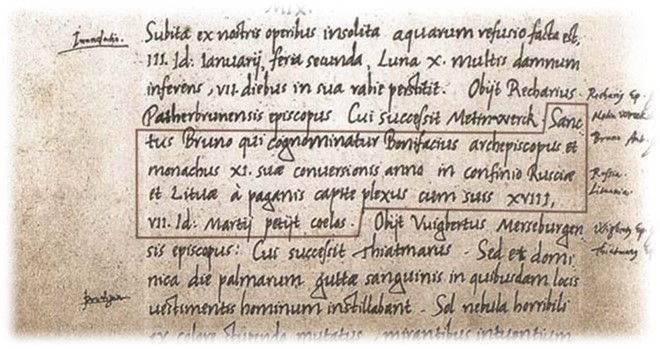 MIX.
Inundatio.
Subita ex nostris operibus insolita aquarum refusio facta est,
III. Id: Ianuarij, feria secunda, Luna X. multis damnum
inferens, VII. diebus in sua rabie perstitit. Obijt Recharius
Patherbrunensis episcopus Cui successit Metinwerck. Sanc
tus Bruno qui cognominatur Bonifacius archepiscopus et
monachus XI. suæ conversionis anno in confinio Rusciæ
et Lituæ à paganis capite plexus cum suis XVIII,
VII. Id: Martij petijt coelos. Obijt Vuigbertus Merseburgen
sis episcopus: Cui successit Thiatmarus. Sed et domi
nica die palmarum guttæ sanguinis in quibusdam locis
vestimentis hominum instillabant. Sol nebula horribili
et colore stupenda mutatus, mirantibus intuentium
Ep.
Bruno
Russia.
Lituania.
Ep.
Ep.